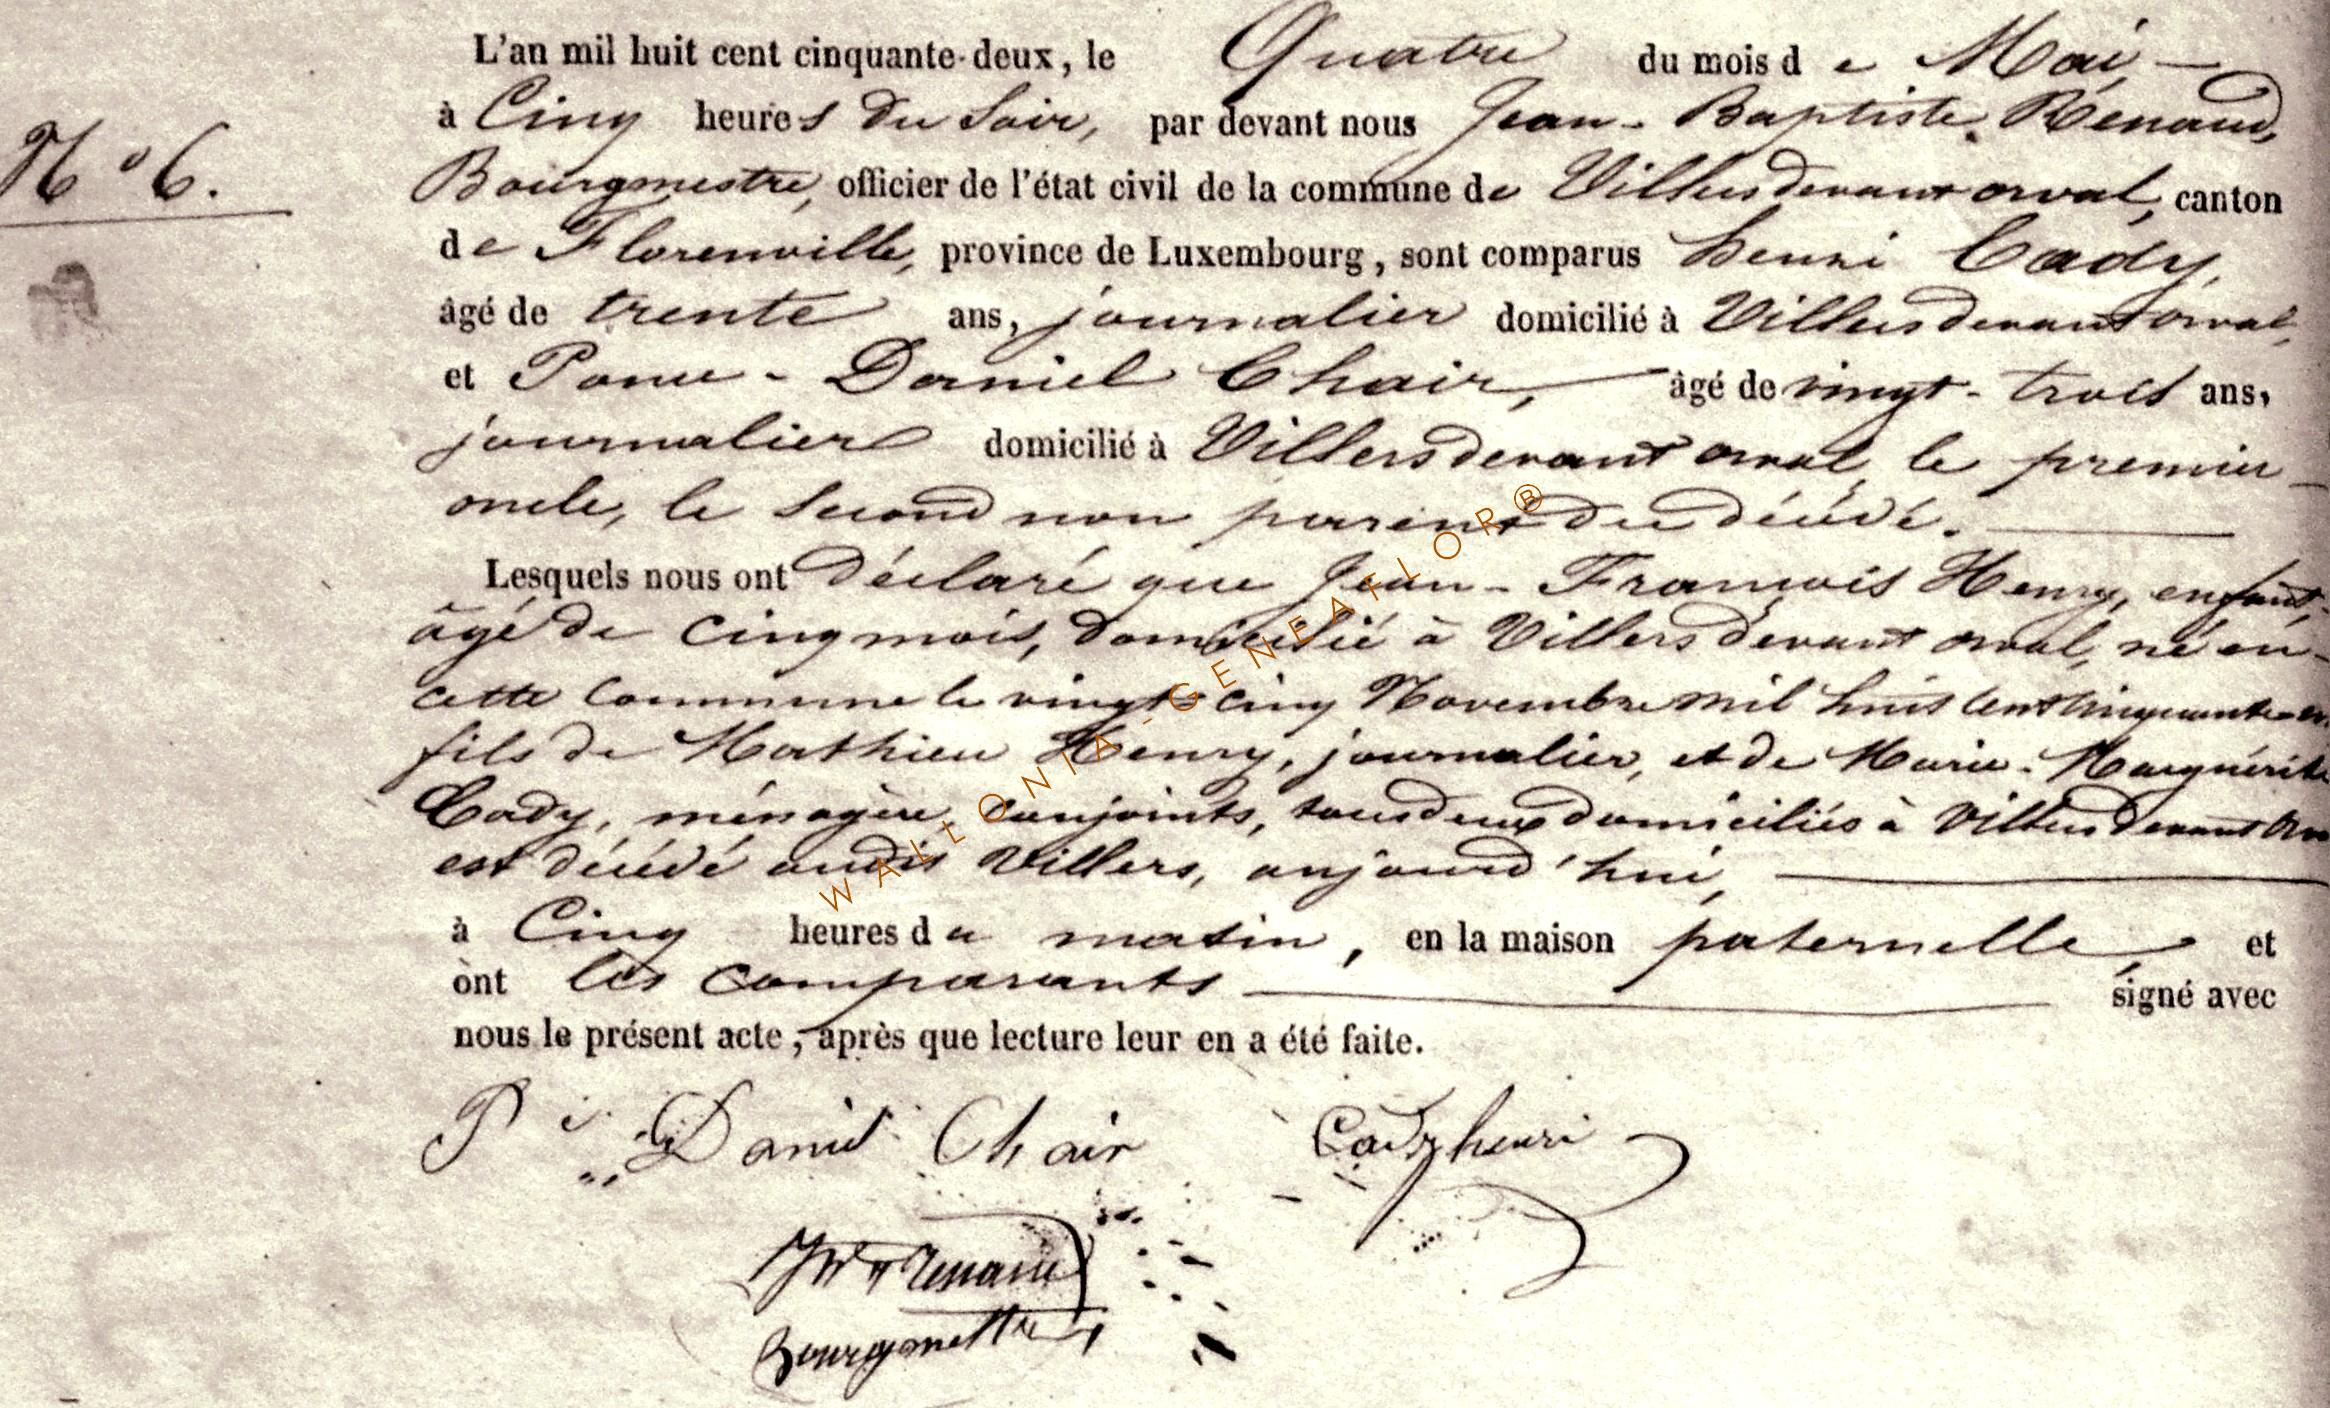 L'an mil huit cent cinquante-deux, le Quatre du mois de Mai
à Cinq heures du soir, par devant nous Jean-Baptiste Renaud,
N° 6.
Bourgmestre, officier de l'état civil de la commune de Villers devant orval, canton
de Florenville, province de Luxembourg, sont comparus henri Cady,
âgé de trente ans, journalier domicilié à Villers devant orval,
et Daniel Chair, âgé de vingt-trois ans,
journalier domicilié à Villers devant orval, le premier
oncle, le second non parent du décédé.
Lesquels nous ont déclaré que Jean-François Henry, enfant
âgé de cinq mois, domicilié à Villers devant orval, né en
cette commune le vingt cinq Novembre mil huit cent cinquante-un
fils de Mathieu Henry, journalier, et de Marie-Marguérite
Cady, ménagère, conjoints, tous deux domiciliés à Villers devant Orval
est décédé audit Villers, aujourd'hui,
à Cinq heures du matin, en la maison paternelle, et
ont les comparants signé avec
nous le présent acte, après que lecture leur en a été faite.
P Daniel Chair Cady henri
Renaud
Bourgmestre
WALLONIA-GENEAFLOR®